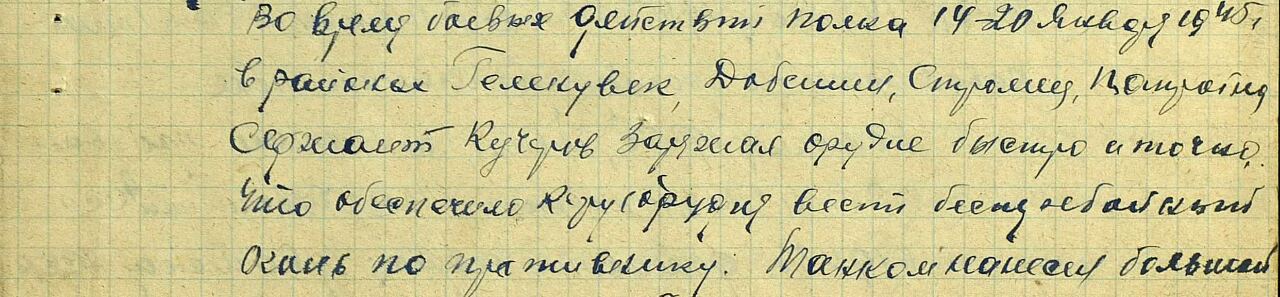 Во время боевых действий полка 14-20 января 1945г
в районах Гелен​увек, Добешин, Стромец, 
Сержант Кучеров Заряжая орудие быстро и точно,
что обеспечило ком. орудия вести бесперебойный
огонь по противнику. Танком нанесен большой